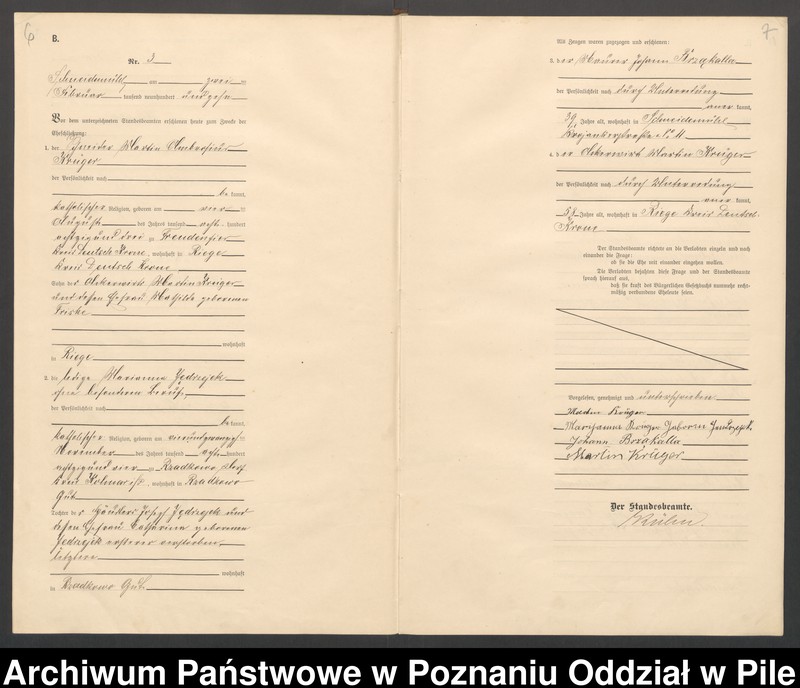 B.
Nr. 3
Schneidemühl am zwei ten
Februar tausend neunhundert und zehn
Vor dem unterzeichneten Standesbeamten erschienen heute zum Zwecke der
Eheschließung:
1. der Schneider Martin Ambrosius
Krüger
der Persönlichkeit nach
be kannt,
katholischer Religion, geboren am vier ten
August des Jahres tausend acht hundert
achtzig und drei zu Freudenfier
Kreis Deutsch Krone, wohnhaft in Riege
Kreis Deutsch Krone
Sohn des Ackerwirts Martin Krüger
und dessen Ehefrau Mathilde geborenen
wohnhaft
in Riege
2. die ledige Marianna Jedrzejek
ohne besonderen Beruf,
der Persönlichkeit nach
be kannt,
katholischer Religion, geboren am vierundzwanzig ten
November des Jahres tausend acht hundert
achtzig und vier zu Rzadkowo Dorf
Kreis Kolmar i. P., wohnhaft in Rzadkowo
Gut
Tochter des Häuslers Josef Jedrzejek und
dessen Ehefrau Catharina geborenen
Jedrzejek ersterer verstorben,
letztere
wohnhaft
in Rzadkowo Gut.
7
Als Zeugen waren zugezogen und erschienen:
3. der Maurer Johann Brzakalla
der Persönlichkeit nach durch Unterredung
aner kannt,
Jahre alt, wohnhaft in Schneidemühl
Bromberger­straße № 11
4. der Ackerwirt Martin Krüger
der Persönlichkeit nach durch Unterredung
aner kannt,
58 Jahre alt, wohnhaft in Riege Kreis Deutsch
Krone
Der Standesbeamte richtete an die Verlobten einzeln und nach
einander die Frage:
ob sie die Ehe mit einander eingehen wollen.
Die Verlobten bejahten diese Frage und der Standesbeamte
sprach hierauf aus,
daß sie kraft des Bürgerlichen Gesetzbuchs nunmehr recht-
mäßig verbundene Eheleute seien.
Vorgelesen, genehmigt und unterschrieben
Martin Krüger
Marijanna Krüger Geborne Jendrzejek
Johann Brzakalla
Martin Krüger
Der Standesbeamte.
Archiwum Państwowe w Poznaniu Oddział w Pile